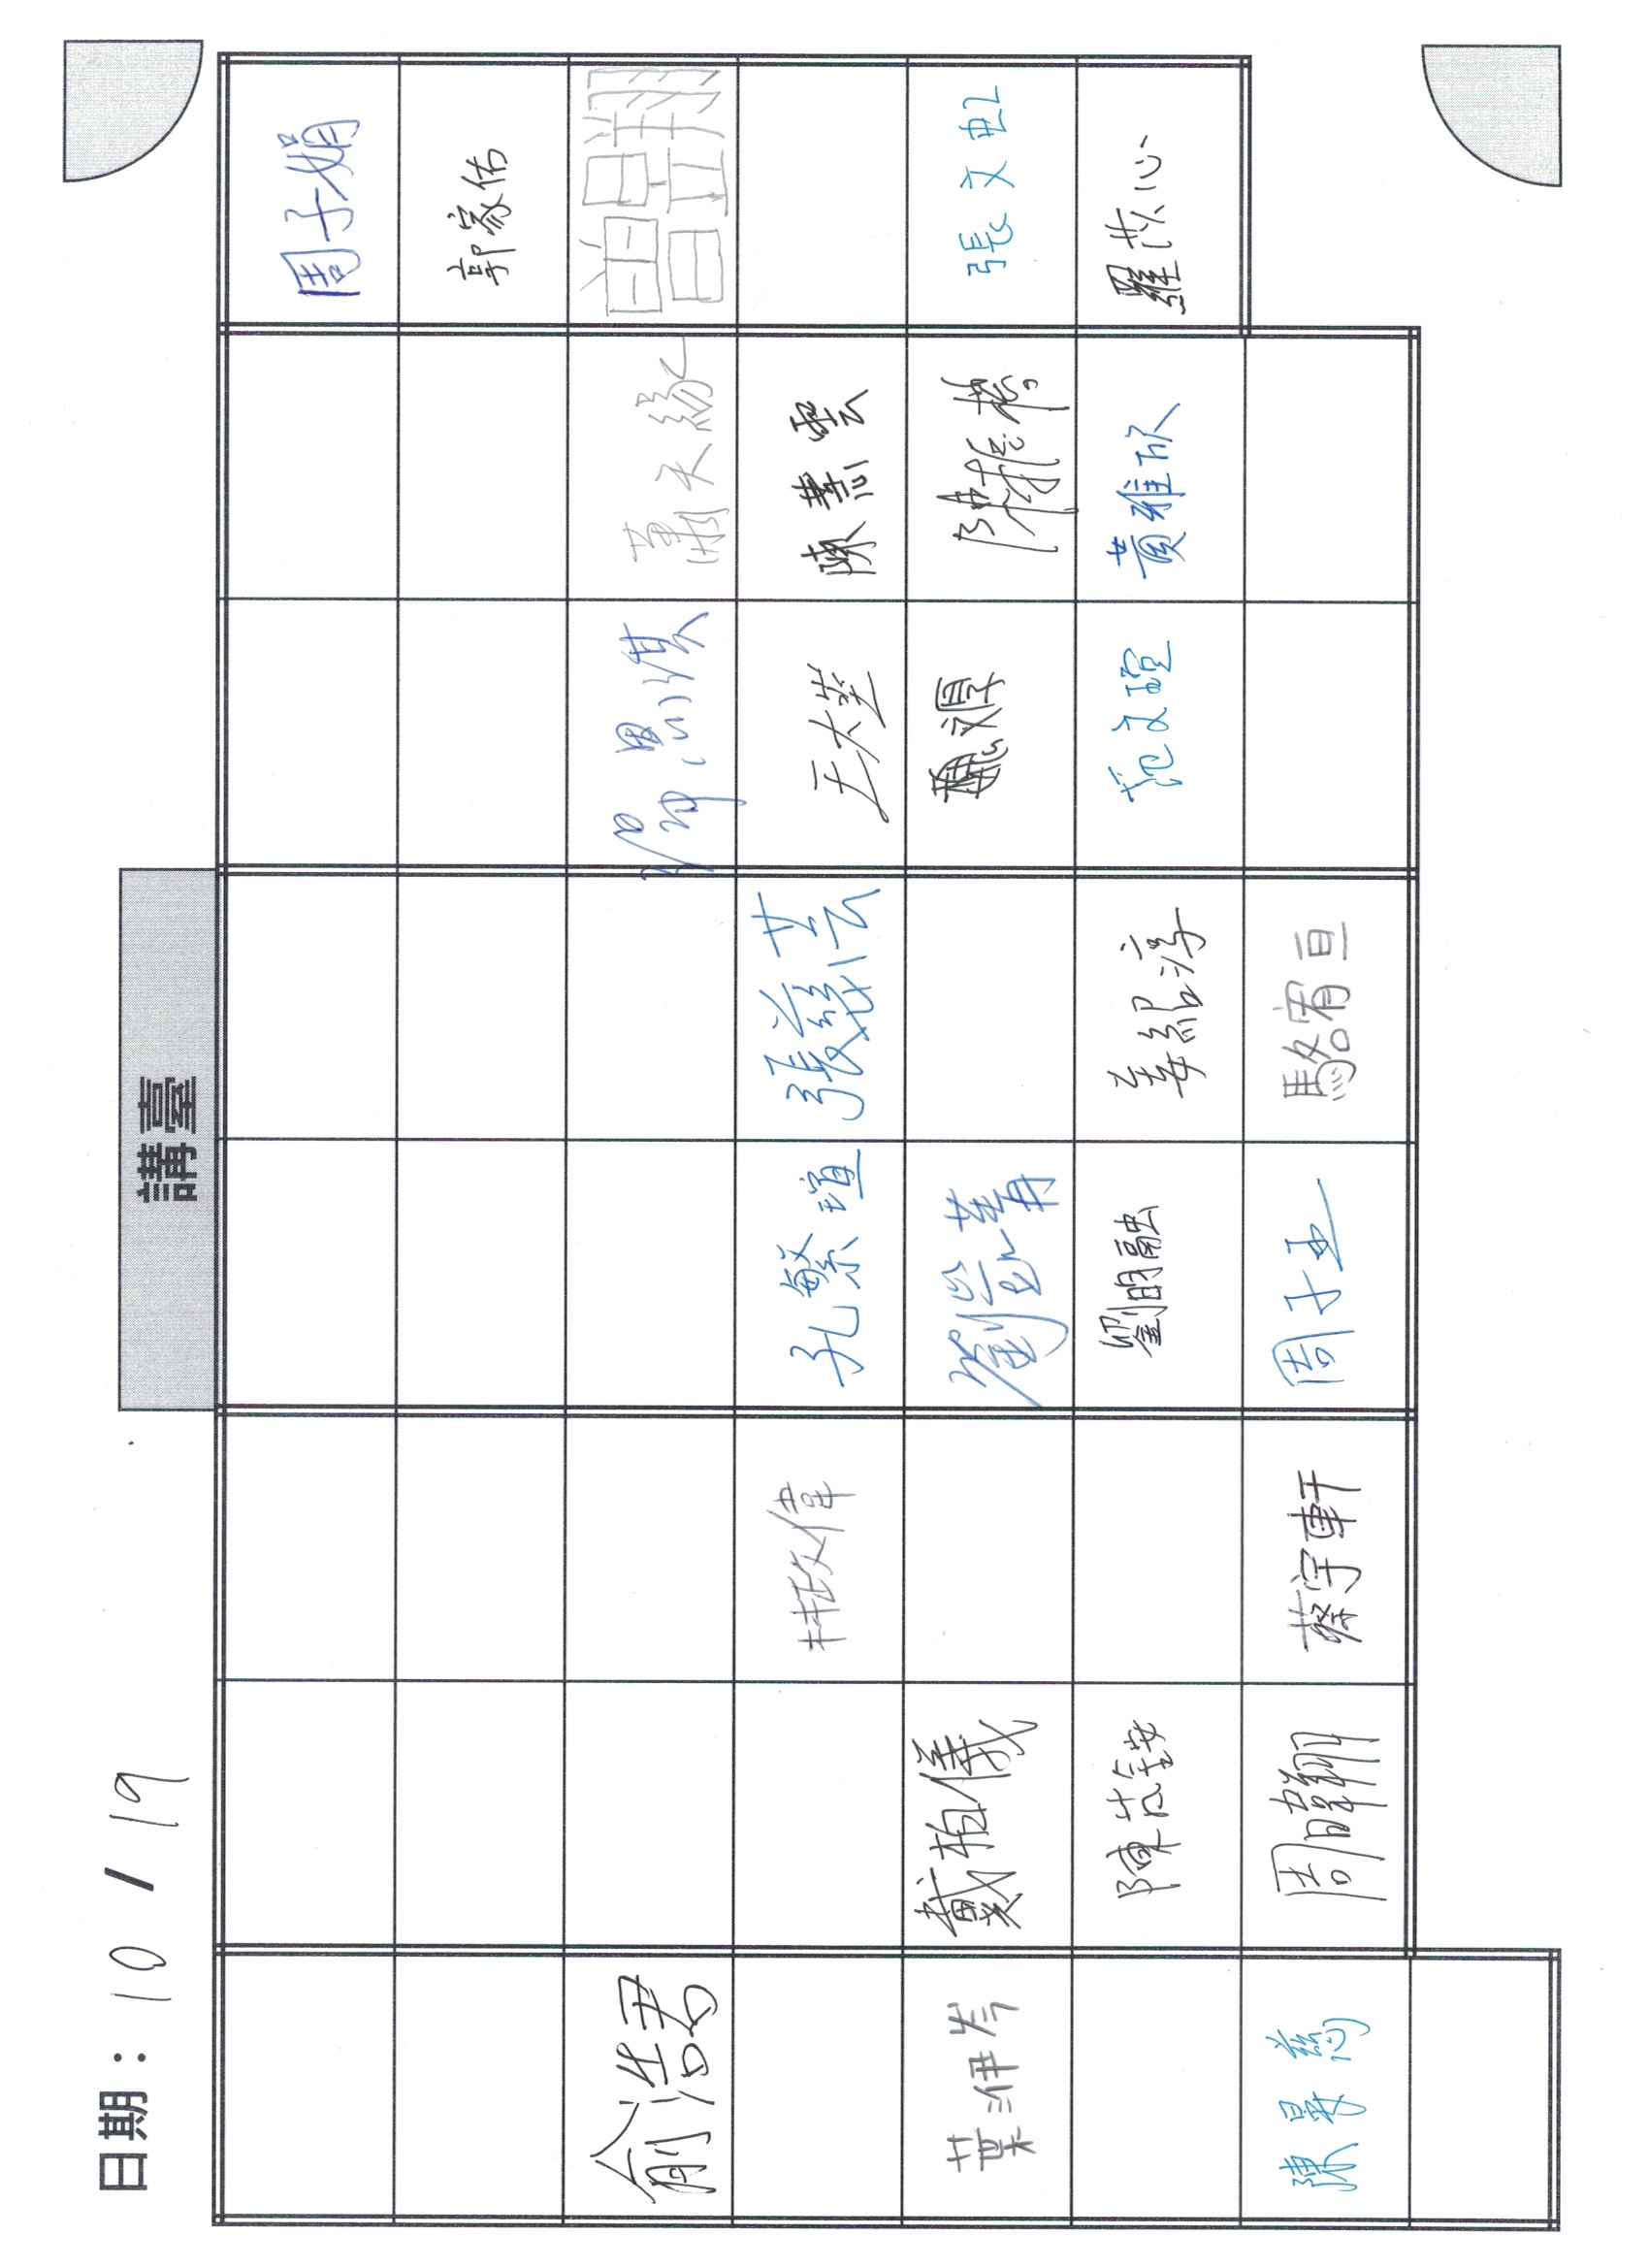 日期： 10 / 19
講臺
周子娟
郭家佑
俞浩君 思淇 蕭天緣 曾昱翔
林政偉 孔繁瑄 張慈芸 王大 陳慧雲
葉洢岑 戴柏儀 劉 菁 魏文 陳 張文虹
陳 銨 劉明融 姜紹淳 范文瑄 黃雅欣 羅苡心
陳晏慈 周暐翔 蔡宇軒 周子玉 駱宥亘